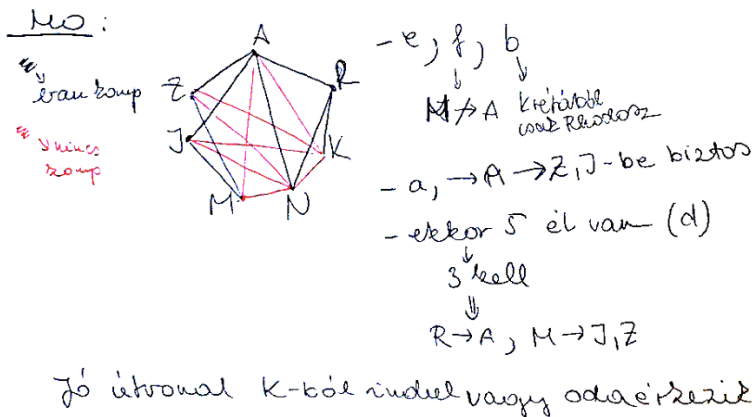 MO:
A
Z
R
J
K
M
N
"—" van komp
"—" nincs komp
- e, f, b
M↛A Krétából
csak Rhodosz
- a, → A → Z, J-be biztos
- ekkor 5 él van (d)
3 kell
R→A, M→J, Z
Jó útvonal K-ból indul vagy oda érkezik